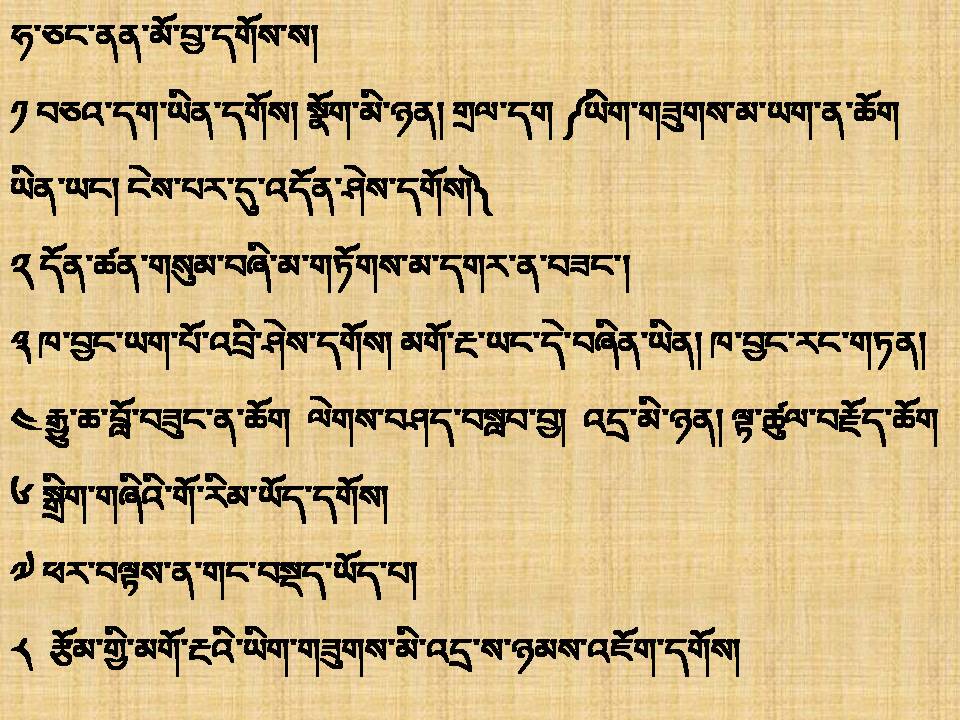 ཧ་ཅང་ནན་མོ་བྱ་དགོས་ས།
༡ བཅའ་དག་ཡིན་དགོས། སྣོག་མི་ཉན། གྲལ་དག ༼ཡིག་གཟུགས་མ་ཡག་ན་ཆོག
ཡིན་ཡང། ངེས་པར་དུ་འདོན་ཤེས་དགོས།༽
༢ དོན་ཚན་གསུམ་བཞི་མ་གཏོགས་མ་དགར་ན་བཟང་།
༣ ཁ་བྱང་ཡག་པོ་འབྲི་ཤེས་དགོས། མགོ་རྔ་ཡང་དེ་བཞིན་ཡིན། ཁ་བྱང་རང་གཏན།
༤ རྒྱུ་ཆ་བློ་བཟུང་ན་ཆོག ལེགས་བཤད་བསླབ་བྱ། འདྲ་མི་ཉན། ལྟ་ཚུལ་བརྗོད་ཆོག
༦ སྒྲིག་གཞིའི་གོ་རིམ་ཡོད་དགོས།
༧ ཕར་བལྟས་ན་གང་བསྡད་ཡོད་པ།
༨ རྩོམ་གྱི་མགོ་རྔའི་ཡིག་གཟུགས་མི་འདྲ་ས་ཉམས་འཇོག་དགོས།